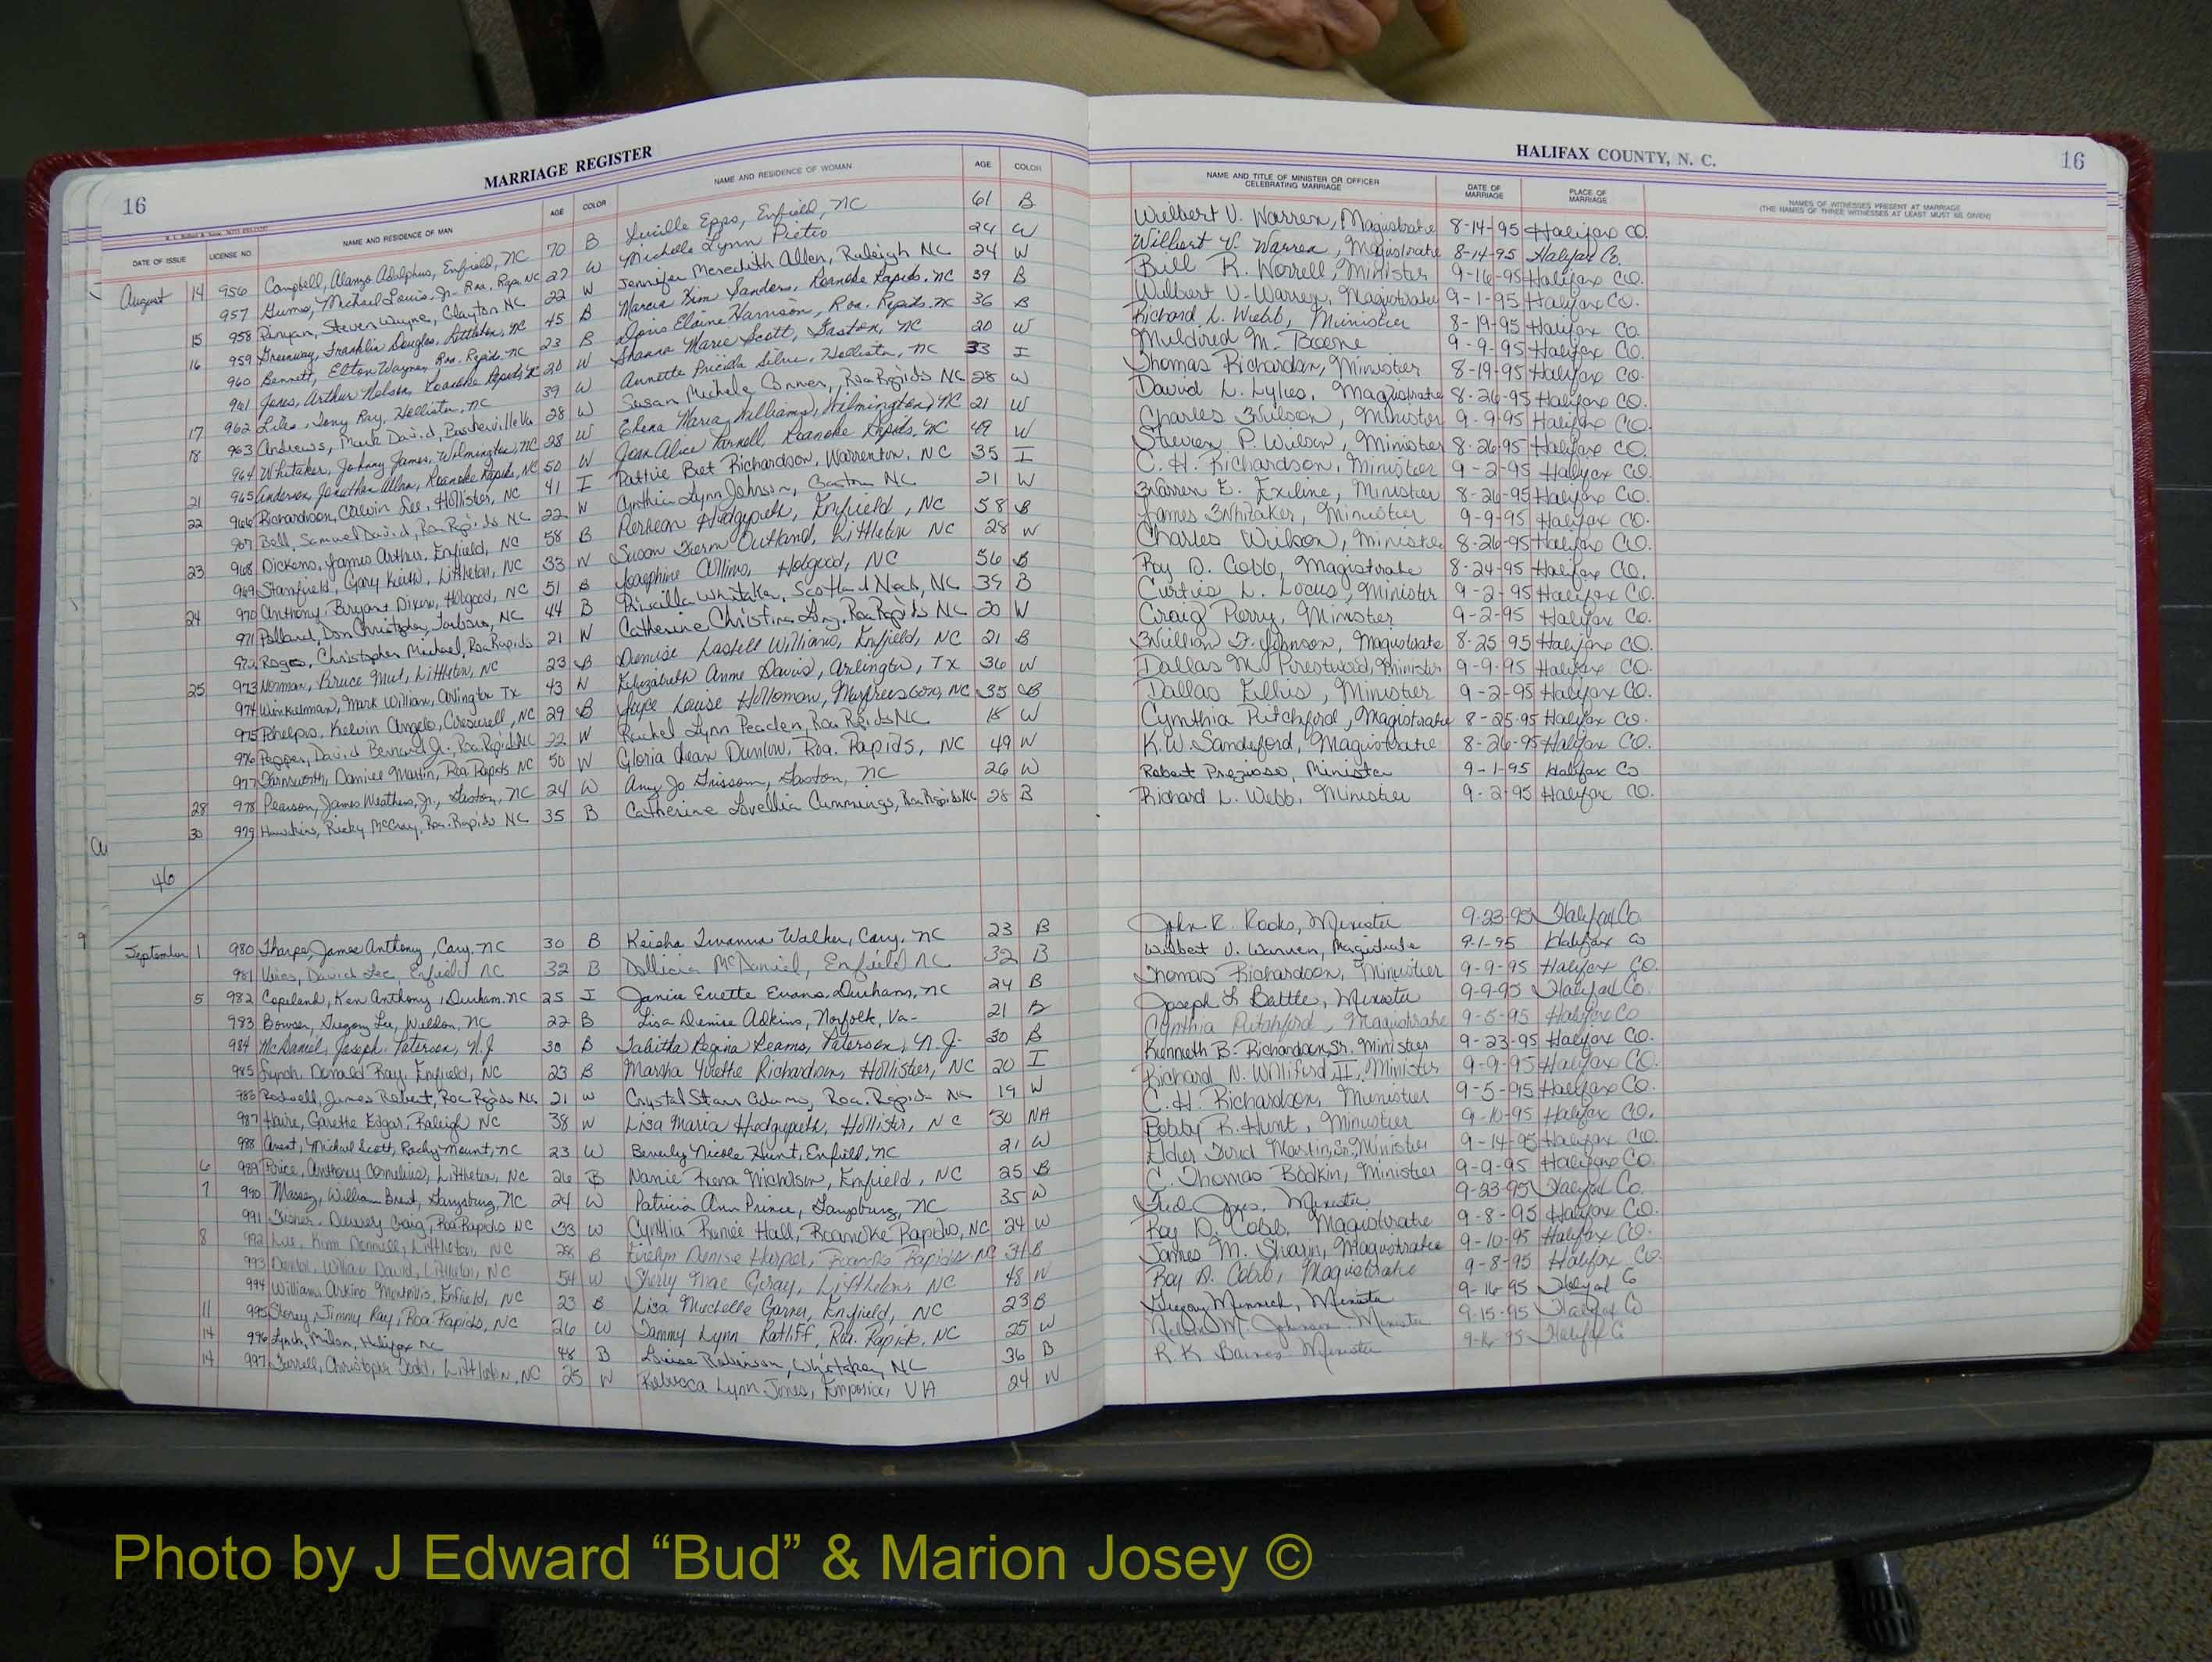 16 MARRIAGE REGISTER
DATE OF ISSUE LICENSE NO. NAME AND RESIDENCE OF MAN AGE COLOR NAME AND RESIDENCE OF WOMAN AGE COLOR
August 14 956 Campbell, Alanzo Adolphus, Enfield, NC 70 B Lucille Epps, Enfield, NC 61 B
957 Gums, Michael Louis, Jr. Roa. Rapids, NC 27 W Michelle Lynn Pietro 24 W
15 958 Pinyan, Steven Wayne, Clayton NC 22 W Jennifer Meredith Allen, Raleigh NC 24 W
16 959 Greenway, Franklin Douglas, Littleton, NC 45 B Marcia Kim Sanders, Roanoke Rapids, NC 39 B
960 Bennett, Elton Wayne, Roa. Rapids, NC 23 B Doris Elaine Harrison, Roa. Rapids, NC 36 B
961 Jones, Arthur Nelson, Roanoke Rapids, NC 20 W Shanna Marie Scott, Gaston, NC 20 W
17 962 Liles, Tony Ray, Hollister, NC 39 W Annette Pricilla Silver, Hollister, NC 33 I
18 963 Andrews, Mark David, Baskerville Va 28 W Susan Michele Conner, Roa Rapids NC 28 W
964 Whitaker, Johnny James, Wilmington, NC 28 W Elena Maria Williams, Wilmington, NC 21 W
21 965 Anderson, Jonathan Allen, Roanoke Rapids, NC 50 W Joan Alice Farnell, Roanoke Rapids, NC 49 W
22 966 Richardson, Calvin Lee, Hollister, NC 41 I Pattie Bet Richardson, Warrenton, NC 35 I
967 Bell, Samuel David, Roa Rapids NC 22 W Cynthia Lynn Johnson, Gaston NC 21 W
23 968 Dickens, James Arthur, Enfield, NC 58 B Hedgepeth, Enfield, NC 58 B
969 Stansfield, Gary Keith, Littleton, NC 33 W Susan Outland, Littleton NC 28 W
24 970 Anthony, Bryant Dixon, Hobgood, NC 51 B Josephine Hobgood, NC 56 B
971 Pollard, Don Christopher, Tarboro, NC 44 B Priscilla Whitaker, Scotland Neck, NC 39 B
972 Christopher Michael, Roa Rapids 21 W Catherine Christina Long, Roa Rapids NC 20 W
25 973 Norman, Bruce Littleton, NC 23 B Denise Lastell Williams, Enfield, NC 21 B
974 Winkelman, Mark William, Arlington TX 43 W Elizabeth Anne David, Arlington, TX 36 W
975 Phelps, Kelvin Angelo, Creswell, NC 29 B Joyce Louise Holloman, Murfreesboro, NC 35 B
976 Pepper, David Bernard Jr. Roa. Rapids NC 22 W Rachel Lynn Peaden, Roa Rapids NC 18 W
977 Farnsworth, Daniel Martin, Roa Rapids NC 50 W Gloria Jean Dunlow, Roa. Rapids, NC 49 W
28 978 Pearson, James Weathers, Jr., Gaston, NC 24 W Amy Jo Grissom, Gaston, NC 26 W
30 979 Hawkins, Ricky McCray, Roa. Rapids NC 35 B Catherine Lovellia Cummings, Roa Rapids NC 28 B
46
September 1 980 Tharpe, James Anthony, Cary, NC 30 B Keisha Twanna Walker, Cary, NC 23 B
981 Vines, David Lee, Enfield NC 32 B Dollicia McDaniel, Enfield NC 32 B
5 982 Copeland, Ken Anthony, Durham, NC 25 I Janice Evette Evans, Durham, NC 24 B
983 Bowser, Gregory Lee, Weldon, NC 22 B Lisa Denise Adkins, Norfolk, Va- 21 B
984 McDaniel, Joseph, Paterson, N.J 30 B Tabitha Regina Reams, Paterson, N.J- 30 B
985 Lynch, Donald Ray, Enfield, NC 23 B Marsha Yvette Richardson, Hollister, NC 20 I
986 Rodwell, James Robert, Roa Rapids NC 21 W Crystal Starr Adams, Roa. Rapids NC 19 W
987 Haire, Garette Edgar, Raleigh NC 38 W Lisa Maria Hedgepeth, Hollister, NC 30 NA
988 Avent, Michael Scott, Rocky Mount, NC 23 W Beverly Nicole Hunt, Enfield, NC 21 W
6 989 Price, Anthony Cornelius, Littleton, NC 26 B Namie Frena Nicholson, Enfield, NC 25 B
7 990 Massey, William Brent, Garysburg, NC 24 W Patricia Ann Prince, Garysburg, NC 35 W
991 Fisher, Dewey Craig, Roa Rapids NC 33 W Cynthia Renée Hall, Roanoke Rapids, NC 24 W
8 992 Lee, Kim Donnell, Littleton, NC 28 B Evelyn Denise Harper, Roanoke Rapids, NC 31 B
993 William David, Littleton, NC 54 W Sherry Mae Gray, Littleton, NC 48 W
994 Williams, Arkino Enfield, NC 23 B Lisa Michelle Garner, Enfield, NC 23 B
11 995 Storey, Jimmy Ray, Roa. Rapids, NC 26 W Tammy Lynn Ratliff, Roa. Rapids, NC 25 W
14 996 Lynch, Milton, Halifax NC 48 B Louise Robinson, Whitakers, NC 36 B
14 997 Turrell, Christopher Todd, Littleton, NC 25 W Rebecca Lynn Jones, Emporia, VA 24 W
HALIFAX COUNTY, N. C. 16
NAME AND TITLE OF MINISTER OR OFFICER CELEBRATING MARRIAGE DATE OF MARRIAGE PLACE OF MARRIAGE NAMES OF WITNESSES PRESENT AT MARRIAGE
(THE NAMES OF THREE WITNESSES AT LEAST MUST BE GIVEN)
Wilbert V. Warren, Magistrate 8-14-95 Halifax CO.
Wilbert V. Warren, Magistrate 8-14-95 Halifax Co.
Bill R. Worrell, Minister 9-16-95 Halifax CO.
Wilbert V. Warren, Magistrate 9-1-95 Halifax Co.
Richard L. Webb, Minister 8-19-95 Halifax Co.
Mildired M. Boone 9-9-95 Halifax CO.
Thomas Richardson, Minister 8-19-95 Halifax CO.
David L. Lyles, Magistrate 8-26-95 Halifax CO.
Charles Wilson, Minister 9-9-95 Halifax CO.
Steven P. Wilson, Minister 8-26-95 Halifax CO.
C. H. Richardson, Minister 9-2-95 Halifax CO.
Warren E. Exline, Minister 8-26-95 Halifax CO.
James Whitaker, Minister 9-9-95 Halifax CO.
Charles Wilson, Minister 8-26-95 Halifax CO.
Roy D. Cobb, Magistrate 8-24-95 Halifax CO.
Curtis L. Locus, Minister 9-2-95 Halifax CO.
Craig Perry, Minister 9-2-95 Halifax Co.
William F. Johnson, Magistrate 8-25-95 Halifax CO.
Dallas M. Prestwood, Minister 9-9-95 Halifax CO.
Dallas Ellis, Minister 9-2-95 Halifax CO.
Cynthia Pitchford, Magistrate 8-25-95 Halifax CO.
K.W. Sandiford, Magistrate 8-26-95 Halifax CO.
Robert Prezioso, Minister 9-1-95 Halifax Co
Richard L. Webb, Minister 9-2-95 Halifax CO.
John R. Rooks, Minister 9-23-95 Halifax Co.
Wilbert V. Warren, Magistrate 9-1-95 Halifax Co
Thomas Richardson, Minister 9-9-95 Halifax CO.
Joseph L Battle, Minister 9-9-95 Halifax Co.
Cynthia Pitchford, Magistrate 9-5-95 Halifax Co
Kenneth B. Richardson, Sr. Minister 9-23-95 Halifax Co.
Richard N. Williford, II, Minister 9-9-95 Halifax CO.
C. H. Richardson, Minister 9-5-95 Halifax Co.
Bobby R. Hunt, Minister 9-10-95 Halifax CO.
Elder Martin, Sr., Minister 9-14-95 Halifax CO.
C. Thomas Bodkin, Minister 9-9-95 Halifax CO.
Minister 9-23-95 Halifax Co.
Roy D. Cobb, Magistrate 9-8-95 Halifax CO.
James M. Shearin, Magistrate 9-10-95 Halifax CO.
Roy D. Cobb, Magistrate 9-8-95 Halifax Co.
Gregory Minnick, Minister 9-16-95 Halifax Co
Nelson M. Johnson, Minister 9-15-95 Halifax Co
R. K Barnes Minister 9-16-95 Halifax Co
Photo by J Edward “Bud” & Marion Josey ©